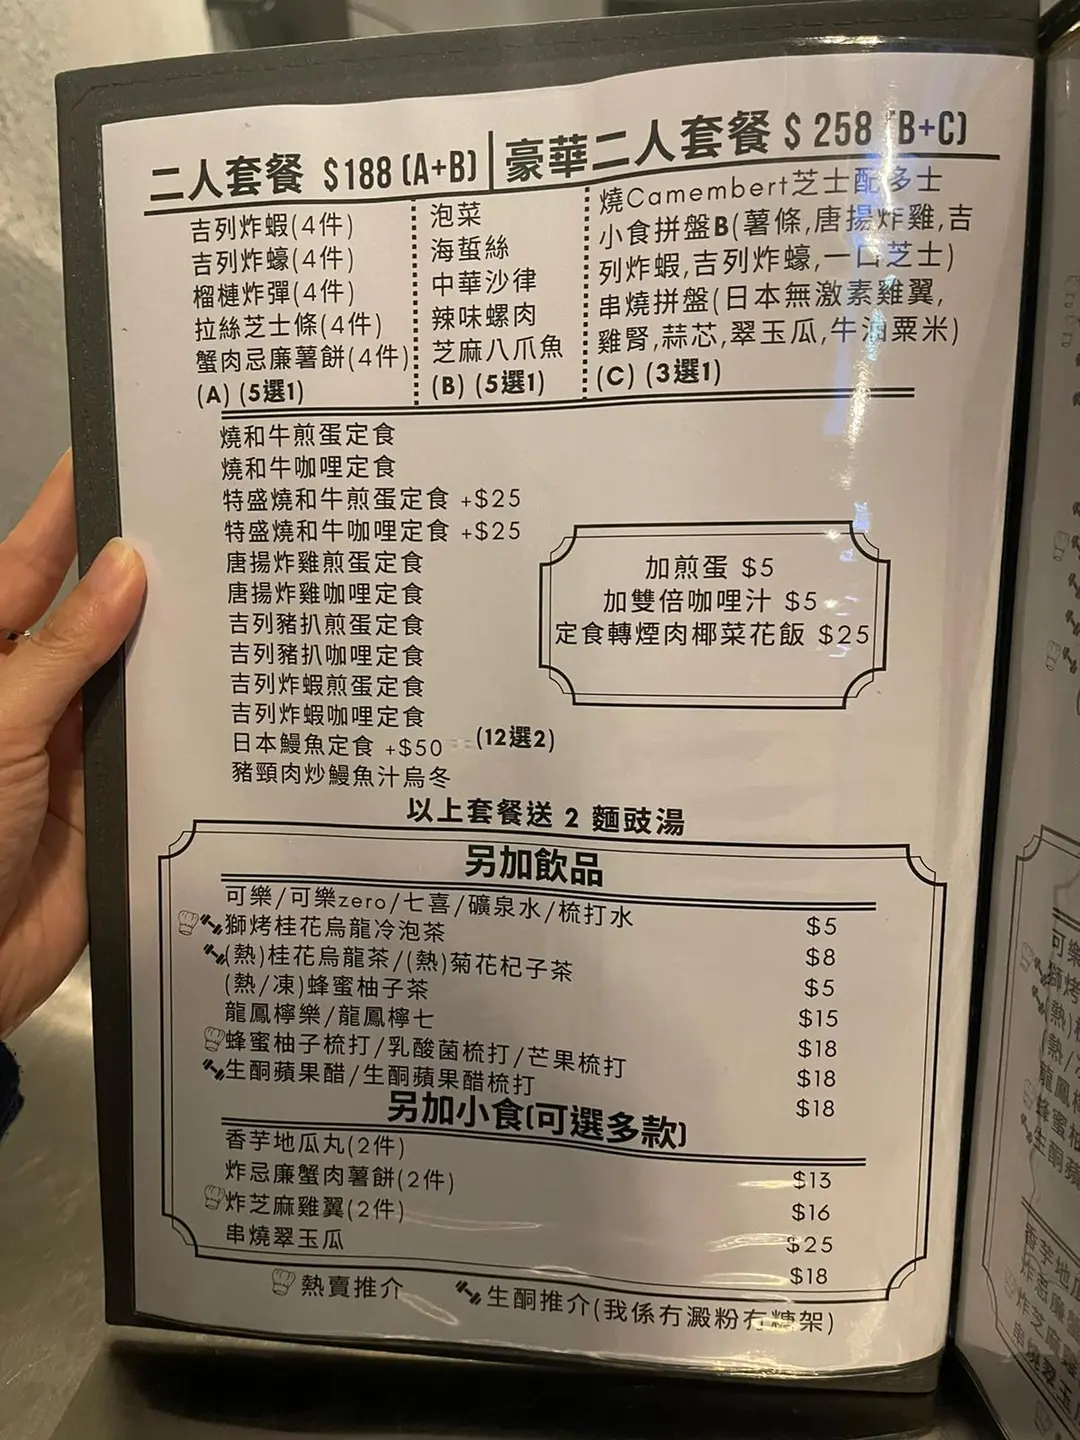 二人套餐 $188 (A+B)
豪華二人套餐 $ 258 (B+C)
吉列炸蝦(4件)
吉列炸蠔(4件)
榴槤炸彈(4件)
拉絲芝士條(4件)
蟹肉忌廉薯餅(4件)
(A) (5選1)
泡菜
海蜇絲
中華沙律
辣味螺肉
芝麻八爪魚
(B) (5選1)
燒Camembert芝士配多士
小食拼盤B(薯條,唐揚炸雞,吉
列炸蝦,吉列炸蠔,一口芝士)
串燒拼盤(日本無激素雞翼,
雞腎,蒜芯,翠玉瓜,牛油粟米)
(C) (3選1)
燒和牛煎蛋定食
燒和牛咖哩定食
特盛燒和牛煎蛋定食 +$25
特盛燒和牛咖哩定食 +$25
唐揚炸雞煎蛋定食
唐揚炸雞咖哩定食
吉列豬扒煎蛋定食
吉列豬扒咖哩定食
吉列炸蝦煎蛋定食
吉列炸蝦咖哩定食
日本鰻魚定食 +$50
豬頸肉炒鰻魚汁烏冬
(12選2)
加煎蛋 $5
加雙倍咖哩汁 $5
定食轉煙肉椰菜花飯 $25
以上套餐送 2 麵豉湯
另加飲品
可樂/可樂zero/七喜/礦泉水/梳打水 $5
獅烤桂花烏龍冷泡茶 $8
(熱)桂花烏龍茶/(熱)菊花杞子茶 $5
(熱/凍)蜂蜜柚子茶 $15
龍鳳檸樂/龍鳳檸七 $18
蜂蜜柚子梳打/乳酸菌梳打/芒果梳打 $18
生酮蘋果醋/生酮蘋果醋梳打 $18
另加小食(可選多款)
香芋地瓜丸(2件) $13
炸忌廉蟹肉薯餅(2件) $16
炸芝麻雞翼(2件) $25
串燒翠玉瓜 $18
熱賣推介
生酮推介(我係冇澱粉冇糖架)